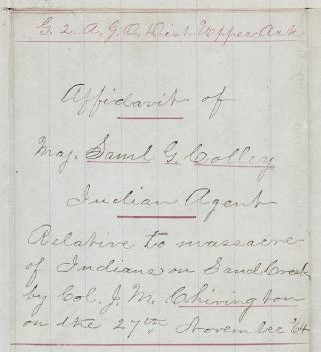 G. 2. A. G. O. Dist Upper Ark
Affidavit of
Maj. Saml G. Colley
Indian Agent
Relative to massacre
of Indians on Sand Creek
by Col. J. M. Chivington
on the 27th November 64